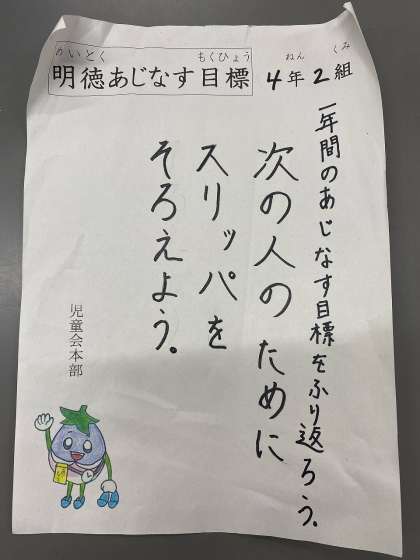 めいとく　もくひょう
明徳あじなす目標
ねん　くみ
4年2組
一年間のあじなす目標をふり返ろう。
次の人のために
スリッパを
そろえよう。
児童会本部